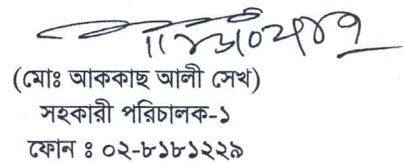 (মোঃ আককাছ আলী সেখ)
সহকারী পরিচালক-১
ফোন ঃ ০২-৮১৮১২২৯